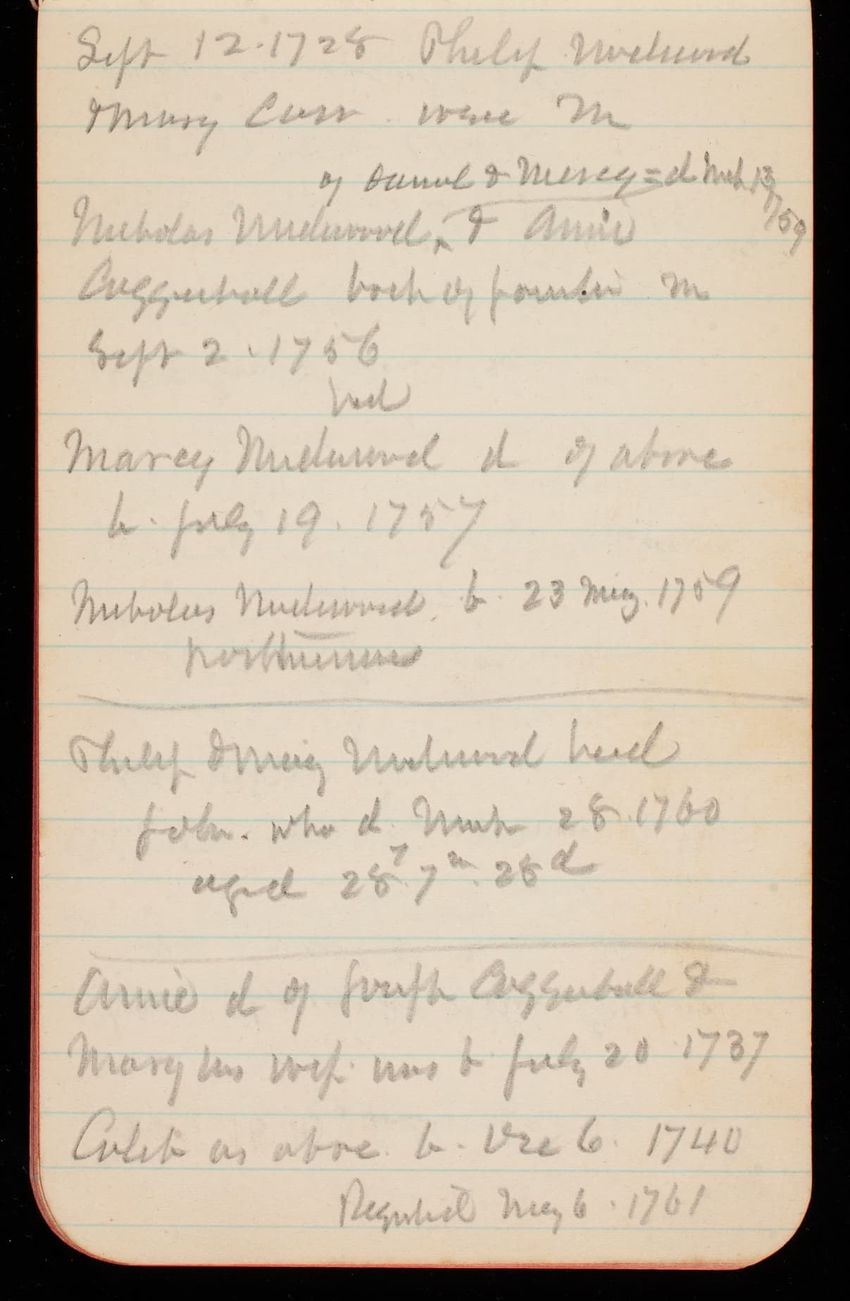 Sept 12. 1728 Philip Underwood
& Mary Carr were m
of Samul & Mercy = d Mch 13 / 1759
Nicholas Underwood ^ & Annie
Coggeshall both of m
Sept 2. 1756
had
Marcy Underwood d of above
b. July 19. 1757
Nicholas Underwood. b. 23 May. 1759
posthumous
Philip & Mary Underwood had
John. who d. March 28. 1760
aged 28 y. 7 m. 28 d
Annie d of Joseph Coggeshall &
Mary his wife was b July 20 1737
Caleb as above. b. Dec 6. 1740
May 6. 1761